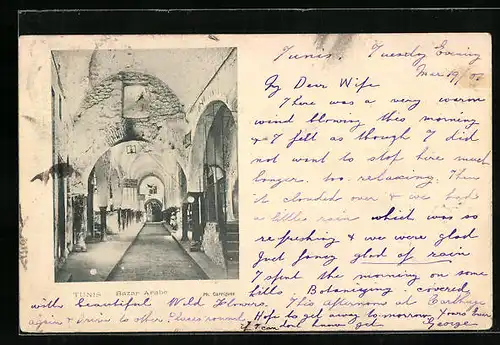 Tunis, Tuesday Evening
Mar 19/07
My Dear Wife
There was a very warm
wind blowing this morning
& I felt as though I did
not want to stop here much
longer, too relaxing. Then
it clouded over & we had
a little rain which was so
refreshing & we were glad
Just fancy glad of rain
I spent the morning on some
hills Botanizing - covered
with beautiful Wild Flowers. This afternoon at Carthage
again & drive to other Places round. Hope to get away to morrow
if I can don't know yet
Yours Ever
George
TUNIS Bazar Arabe
Ph. Garrigues